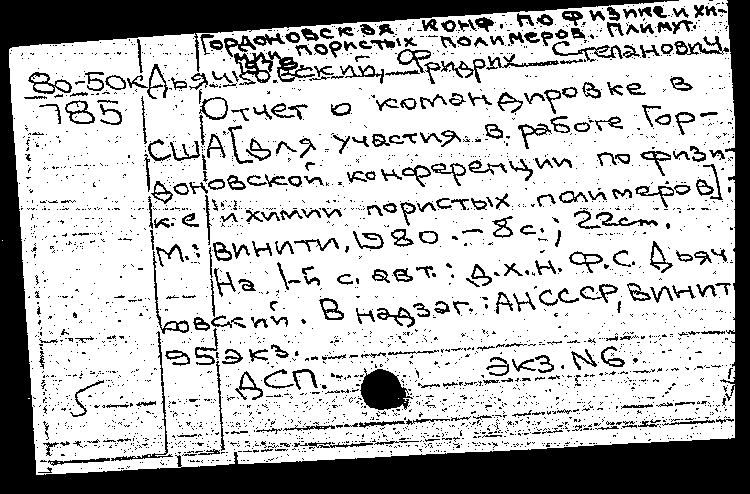 Гордоновская конф. по физике и хи-
мии пористых полимеров. Плимут.
80-50к Дьячковский, Фридрих Степанович.
785 Отчет о командировке в
США [для участия в работе Гор-
доновской конференции по физи-
ке и химии пористых полимеров].
М.: ВИНИТИ, 1980. - 8 с.; 22 см.
На 1-й с. авт.: д.х.н. Ф.С. Дьяч-
ковский. В надзаг.: АН СССР, ВИНИТИ
95 экз.
ДСП. Экз. N6.
5